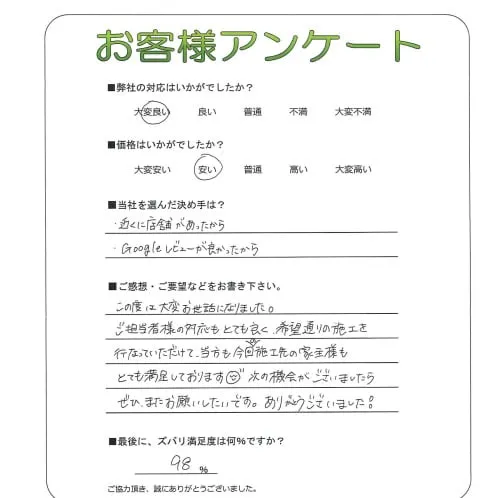 お客様アンケート
■弊社の対応はいかがでしたか？
大変良い 良い 普通 不満 大変不満
■価格はいかがでしたか？
大変安い 安い 普通 高い 大変高い
■当社を選んだ決め手は？
・近くに店舗があったから
・Googleレビューが良かったから
■ご感想・ご要望などをお書き下さい。
この度は大変お世話になりました。
ご担当者様の対応もとても良く、希望通りの施工を
行なっていただけて、当方も今回施工先の家主様も
とても満足しております 次の機会がございましたら
ぜひ、またお願いしたいです。ありがとうございました！
■最後に、ズバリ満足度は何%ですか？
98 %
ご協力頂き、誠にありがとうございました。